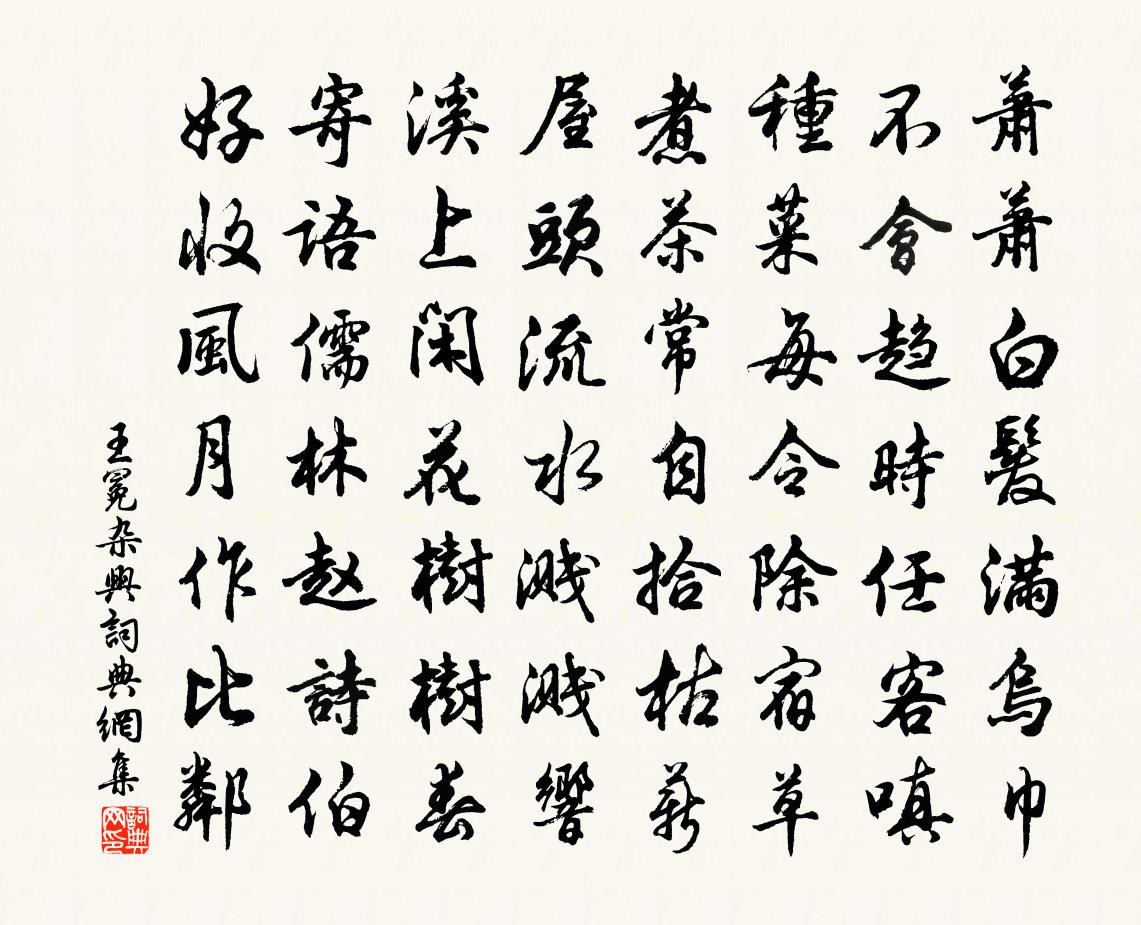 蕭蕭白髮滿烏巾
不會趋時任客嗔
種菜每令除宿草
煮茶常自拾枯薪
屋頭流水濺濺響
溪上閑花樹樹春
寄語儒林赵詩伯
好收風月作比鄰
王冕杂興詞典網集
詞典网印